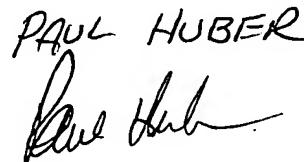 PAUL HUBER
Paul Huber